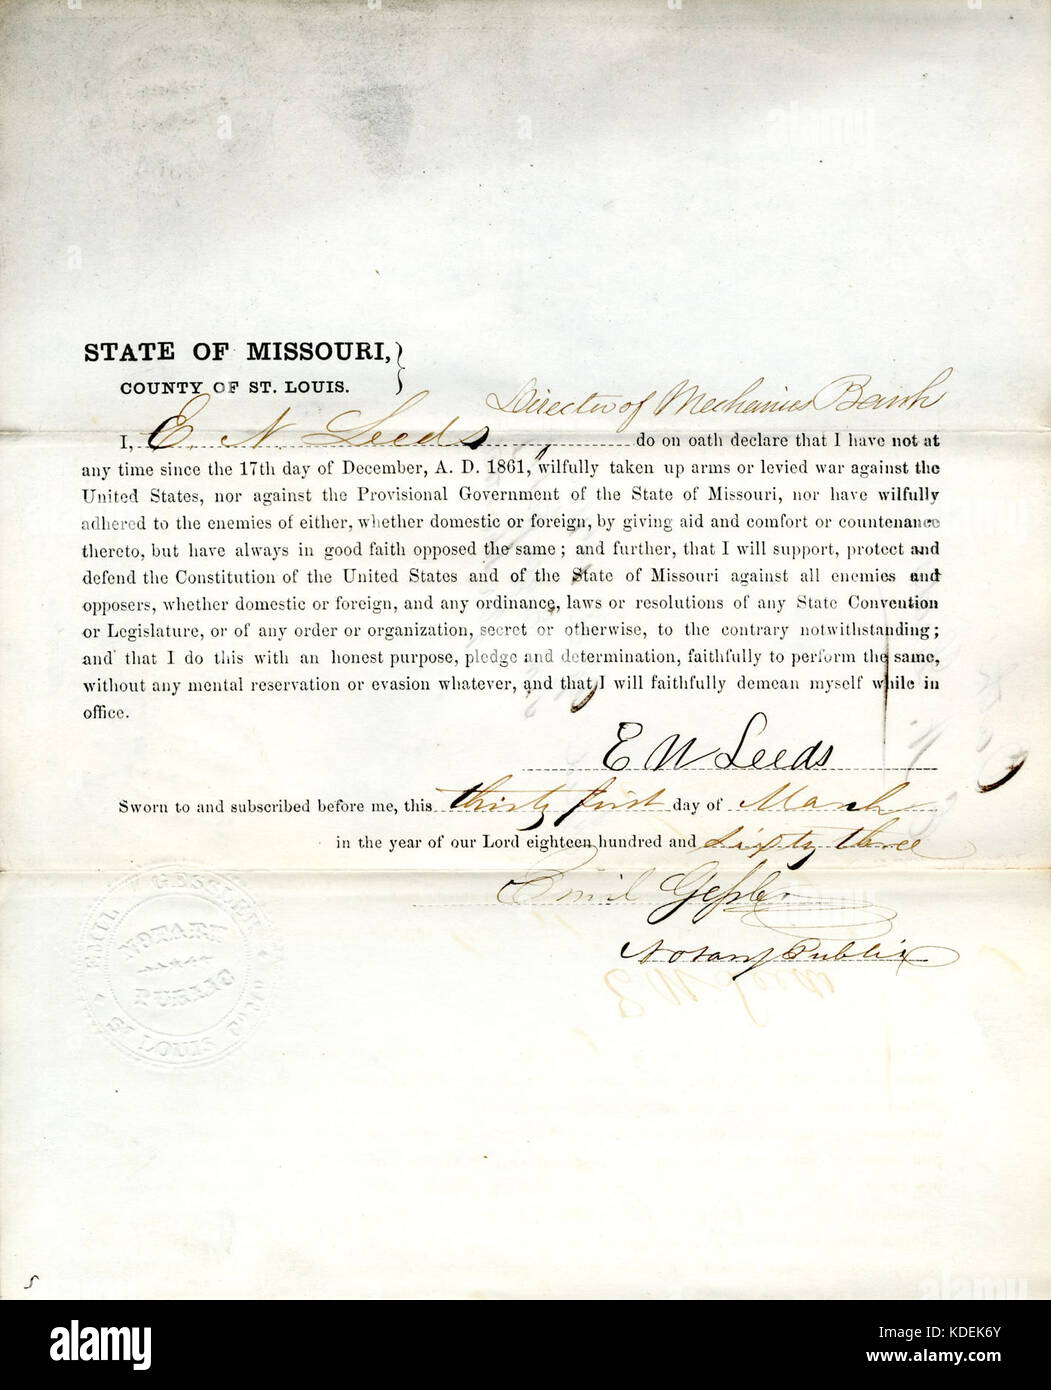 alamy
a
a
a
STATE OF MISSOURI,
COUNTY OF ST. LOUIS.
Director of Mechanics Bank
I, E. N. Leeds do on oath declare that I have not at
any time since the 17th day of December, A. D. 1861, wilfully taken up arms or levied war against the
United States, nor against the Provisional Government of the State of Missouri, nor have wilfully
adhered to the enemies of either, whether domestic or foreign, by giving aid and comfort or countenance
thereto, but have always in good faith opposed the same; and further, that I will support, protect and
defend the Constitution of the United States and of the State of Missouri against all enemies and
opposers, whether domestic or foreign, and any ordinance, laws or resolutions of any State Convention
or Legislature, or of any order or organization, secret or otherwise, to the contrary notwithstanding;
and that I do this with an honest purpose, pledge and determination, faithfully to perform the same,
without any mental reservation or evasion whatever, and that I will faithfully demean myself while in
office.
E N Leeds
Sworn to and subscribed before me, this thirty first day of March
in the year of our Lord eighteen hundred and sixty three
Emil
Notary Public
EMIL
NOTARY
ST LOUIS
alamy
Image ID: KDEK6Y
www.alamy.com